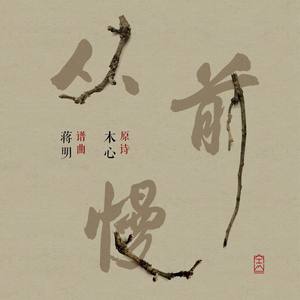 从前慢
原诗
木心
谱曲
蒋明